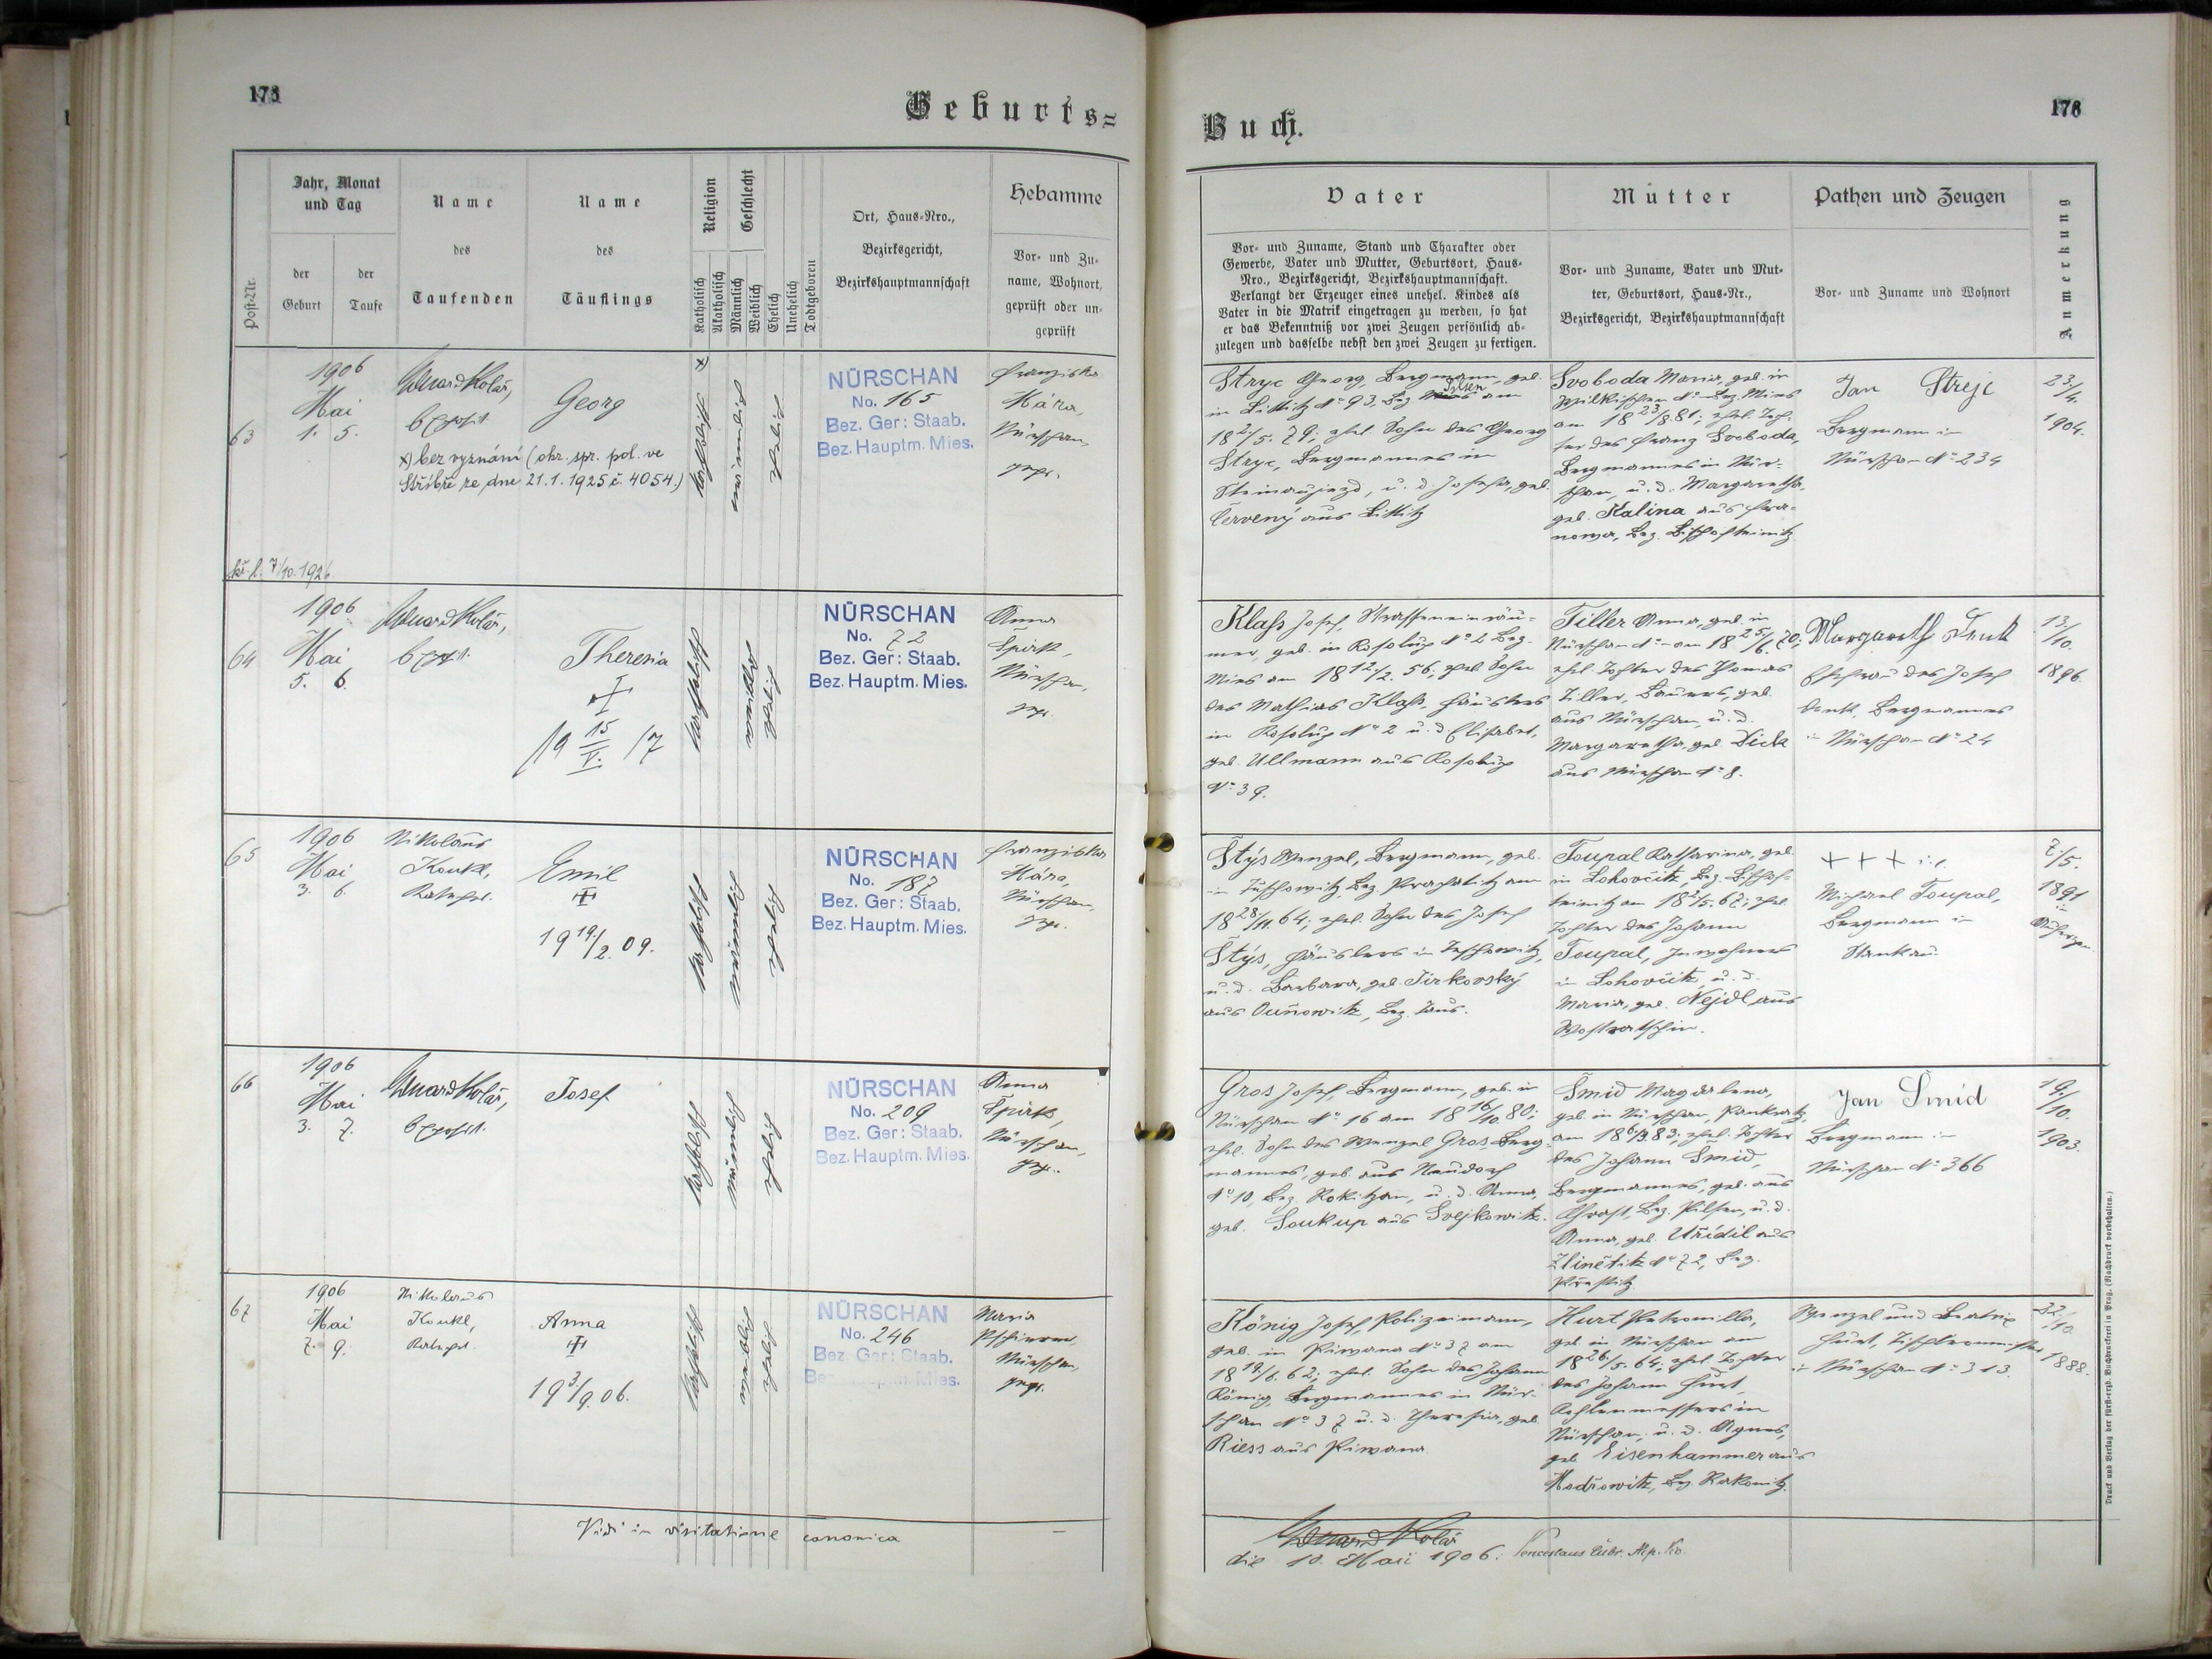 173
Geburts=
Post-Nr.
Jahr, Monat
und Tag
der
Geburt
der
Taufe
Name
des
Taufenden
Name
des
Täuflings
Religion
Katholisch
Akatholisch
Geschlecht
Männlich
Weiblich
Ehelich
Unehelich
Todtgeboren
Ort, Haus-Nro.,
Bezirksgericht,
Bezirkshauptmannschaft
Hebamme
Vor- und Zu-
name, Wohnort,
geprüft oder un-
geprüft
63
1906
Mai
1. 5.
Eduard Kolář,
Exposit
Georg
x) bez vyznání (okr. spr. pol. ve
Stříbře ze dne 21.1.1925 č. 4054.)
7/10. 1926
x)
katholisch
männlich
ehelich
NÜRSCHAN
No. 165
Bez. Ger: Staab.
Bez. Hauptm. Mies.
Franziska
Kára,
Nürschan
gepr.
64
1906
Mai
5. 6.
Eduard Kolář,
Exposit.
Theresia
19 15/V. 17
katholisch
weiblich
ehelich
NÜRSCHAN
No. 72
Bez. Ger: Staab.
Bez. Hauptm. Mies.
Anna
Spirk,
Nürschan,
gepr.
65
1906
Mai
3. 6.
Nikolaus
Koukl,
Katechet.
Emil
19 19/2. 09.
katholisch
männlich
ehelich
NÜRSCHAN
No. 187
Bez. Ger: Staab.
Bez. Hauptm. Mies.
Franziska
Kára,
Nürschan,
gepr.
66
1906
Mai
3. 7.
Eduard Kolář,
Exposit.
Josef
katholisch
männlich
ehelich
NÜRSCHAN
No. 209
Bez. Ger: Staab.
Bez. Hauptm. Mies.
Anna
Spirk,
Nürschan,
gepr.
67
1906
Mai
7. 9.
Nikolaus
Koukl,
Katechet.
Anna
19 3/9. 06.
katholisch
weiblich
ehelich
NÜRSCHAN
No. 246
Bez. Ger: Staab.
Maria
Nürschan,
gepr.
Vidi in visitatione canonica
Buch.
176
Vater
Vor- und Zuname, Stand und Charakter oder
Gewerbe, Vater und Mutter, Geburtsort, Haus-
Nro., Bezirksgericht, Bezirkshauptmannschaft.
Verlangt der Erzeuger eines unehel. Kindes als
Vater in die Matrik eingetragen zu werden, so hat
er das Bekenntniß vor zwei Zeugen persönlich ab-
zulegen und dasselbe nebst den zwei Zeugen zu fertigen.
Mutter
Vor- und Zuname, Vater und Mut-
ter, Geburtsort, Haus-Nr.,
Bezirksgericht, Bezirkshauptmannschaft
Pathen und Zeugen
Vor- und Zuname und Wohnort
Anmerkung
Stryc Georg, Bergmann, geb.
in Littitz No 93, Bez. Pilsen am
18 2/5. 79; ehel. Sohn des Georg
Stryc, Bergmannes in
Steinaujezd, u. d. Josefa, geb.
Červený aus Littitz
Svoboda Maria, geb. in
Wilkischen No Bez. Mies
am 18 23/8 81; ehel. Toch-
ter des Franz Svoboda,
Bergmannes in Nür-
schan, u. d. Margaretha,
geb. Kalina aus
Bez. Bischofteinitz
Jan Strejc
Bergmann in
Nürschan No 234
23/4.
1904.
Klaß Josef, Strasseneinräu-
mer, geb. in Kosolup No 2 Bez.
Mies am 18 12/2. 56; ehel. Sohn
des Mathias Klaß, Häuslers
in Kosolup No 2 u. d. Elisabet,
geb. Ullmann aus Kosolup
No 39.
Tiller Anna, geb. in
Nürschan No am 18 25/6. 70;
ehel. Tochter des Thomas
Tiller, Bauers, geb.
aus Nürschan, u. d.
Margaretha, geb. Dick
aus Nürschan No 8.
Margareth Denk
Ehefrau des Josef
Denk, Bergmannes
in Nürschan No 24
13/10.
1896.
Štýs Wenzel, Bergmann, geb.
in Bez. Prachatitz am
18 28/11. 64; ehel. Sohn des Josef
Štýs, Häuslers in
u. d. Barbara, geb. Jirkovský
aus Bez. Taus.
Toupal Katharina, geb.
in Lohovčitz, Bez. Bischof-
teinitz am 18 2/5. 67; ehel.
Tochter des Johann
Toupal, Inwohners
in Lohovčitz, u. d.
Maria, geb. Nejdl aus
+ + +
Michael Toupal,
Bergmann in
Stankau.
7/5.
1891
in
Gros Josef, Bergmann, geb. in
Nürschan No 16 am 18 16/10. 80;
ehel. Sohn des Wenzel Gros, Berg-
mannes, geb. aus Neudorf
No 10, Bez. Rokitzan, u. d. Anna,
geb. Soukup aus Svejkowitz.
Šmid Magdalena,
geb. in Nürschan, Pankratz,
am 18 6/3. 83; ehel. Tochter
des Johann Šmid,
Bergmannes, geb. aus
Chrast, Bez. Pilsen, u. d.
Anna, geb. Uřídil aus
No 72, Bez.
Prestitz
Jan Šmid
Bergmann in
Nürschan No 366
19/10.
1903.
König Josef, Polizeimann,
geb. in Piwana No 37 am
18 19/6. 62; ehel. Sohn des Johann
König, Bergmannes in Nür-
schan No 37 u. d. Theresia, geb.
Riess aus Piwana
Hurt Petronilla,
geb. in Nürschan am
18 26/5. 64; ehel. Tochter
des Johann Hurt,
Kohlenmessers in
Nürschan, u. d. Agnes,
geb. Eisenhammer aus
Modřowitz, Bez. Rakonitz.
Wenzel und Beatrix
Hurt, Tischlermeister
in Nürschan No 313.
22/10.
1888.
Eduard Kolář
die 10. Maii 1906.
Druck und Verlag der fürst-erzb. Buchdruckerei in Prag. (Nachdruck vorbehalten.)